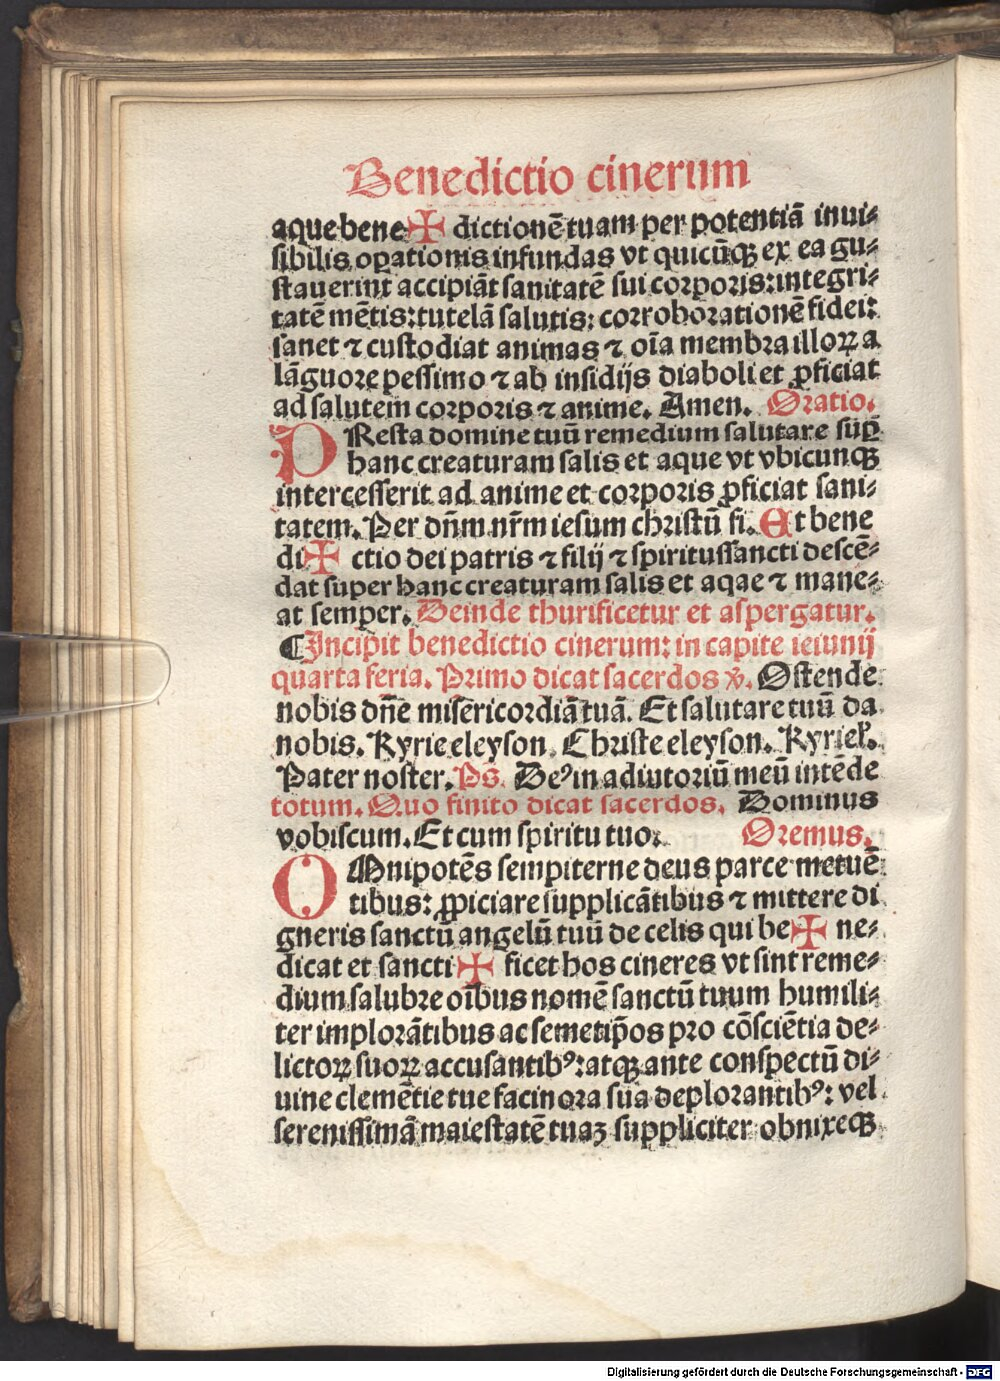 Benedictio cinerum
aque bene ✠ dictionē tuam per potentiā inui⸗
sibilis oꝑationis infundas vt quicūqꝫ ex ea gu⸗
stauerint accipiāt sanitatē sui corporis: integri⸗
tatē mētis: tutelā salutis: corroborationē fidei:
sanet ⁊ custodiat animas ⁊ oīa membra illoꝝ a
lāguore pessimo ⁊ ab insidijs diaboli et ꝓficiat
ad salutem corporis ⁊ anime. Amen. Oratio.
PResta domine tuū remedium salutare suꝑ
hanc creaturam salis et aque vt vbicunqꝫ
intercesserit ad anime et corporis ꝓficiat sani⸗
tatem. Per dn̄m nr̄m iesum christū fi. Et bene
di ✠ ctio dei patris ⁊ filij ⁊ spiritussancti descē⸗
dat super hanc creaturam salis et aqae ⁊ mane⸗
at semper. Deinde thurificetur et aspergatur.
¶ Incipit benedictio cinerum: in capite ieiunij
quarta feria. Primo dicat sacerdos v̄. Ostende
nobis dn̄e misericordiā tuā. Et salutare tuū da
nobis. Kyrie eleyson. Christe eleyson. Kyriel'.
Pater noster. Ps. Deꝰ in adiutoriū meū intēde
totum. Quo finito dicat sacerdos. Dominus
vobiscum. Et cum spiritu tuo. Oremus.
OMnipotēs sempiterne deus parce metuē
tibus: ꝓpiciare supplicātibus ⁊ mittere di
gneris sanctū angelū tuū de celis qui be ✠ ne⸗
dicat et sancti ✠ ficet hos cineres vt sint reme⸗
dium salubre oībus nomē sanctū tuum humili⸗
ter implorātibus ac semetip̄os pro cōsciētia de⸗
lictoꝝ suoꝝ accusantibꝰ: atqꝫ ante conspectū di⸗
uine clemētie tue facinora sua deplorantibꝰ: vel
serenissimā maiestatē tuaꝫ suppliciter obnixeqꝫ
Digitalisierung gefördert durch die Deutsche Forschungsgemeinschaft - DFG